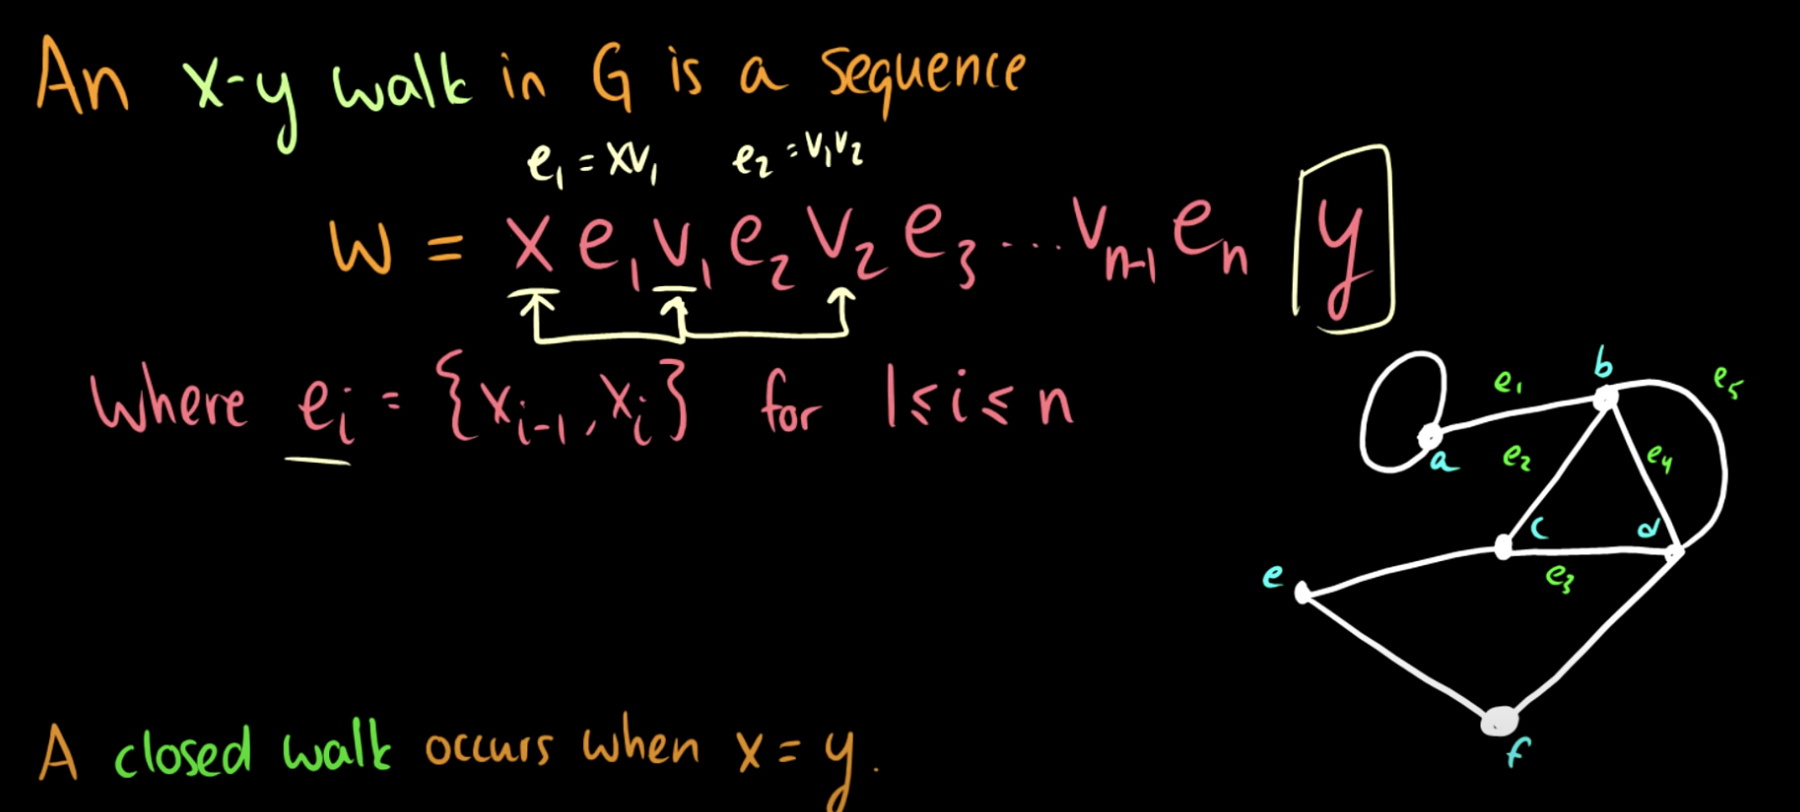 An x-y walk in G is a sequence
e₁ = xv₁ e₂ = v₁v₂
W = x e₁ v₁ e₂ v₂ e₃ ... vₙ₋₁ eₙ y
Where eᵢ = {xᵢ₋₁, xᵢ} for 1 ≤ i ≤ n
b
e₁
e₅
a
e₂
e₄
c
d
e₃
e
f
A closed walk occurs when x = y.